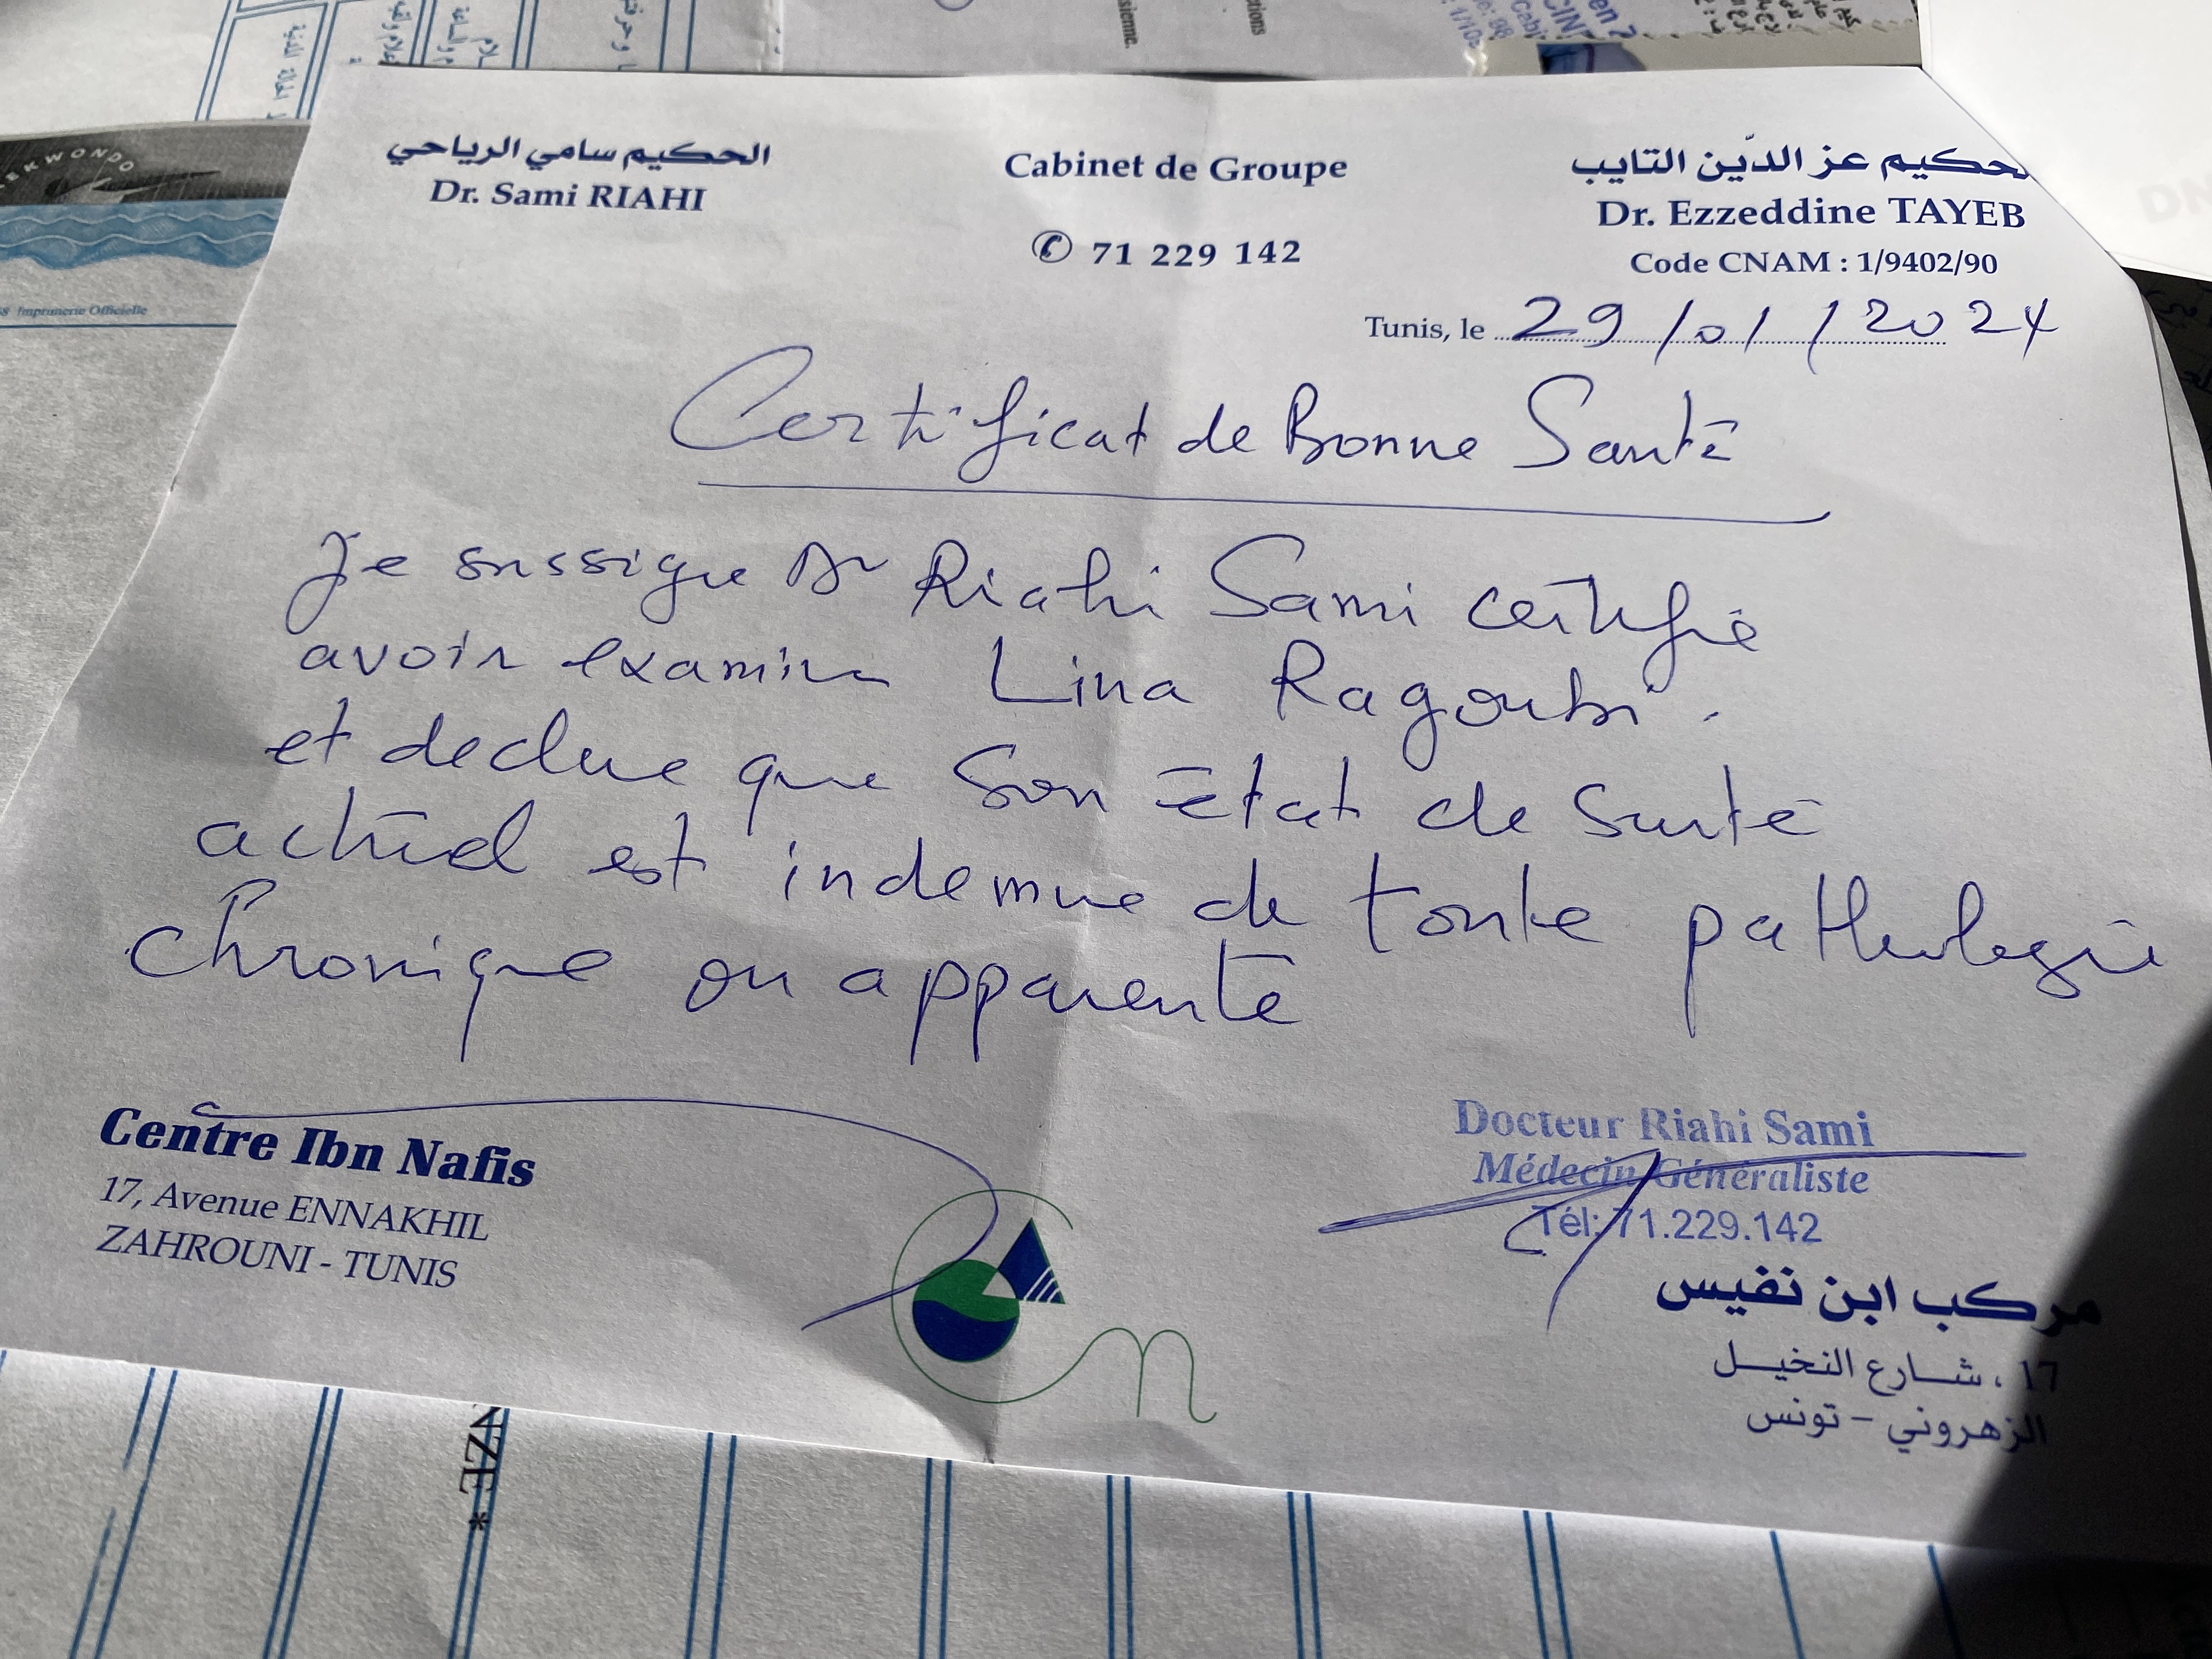 الحكيم سامي الرياحي
Dr. Sami RIAHI
Cabinet de Groupe
✆ 71 229 142
لحكيم عز الدّين التايب
Dr. Ezzeddine TAYEB
Code CNAM : 1/9402/90
Tunis, le 29/01/2024
Certificat de Bonne Santé
Je sussigne Dr Riahi Sami certifie
avoir examine Lina Ragoubi.
et declare que Son état de Santé
actuel est indemne de toute pathologie
Chronique ou apparente
Centre Ibn Nafis
17, Avenue ENNAKHIL
ZAHROUNI - TUNIS
Docteur Riahi Sami
Médecin Généraliste
Tél: 71.229.142
مركب ابن نفيس
17 ، شارع النخيل
الزهروني - تونس
EKWONDO
8 Imprimerie Officielle
NZE *